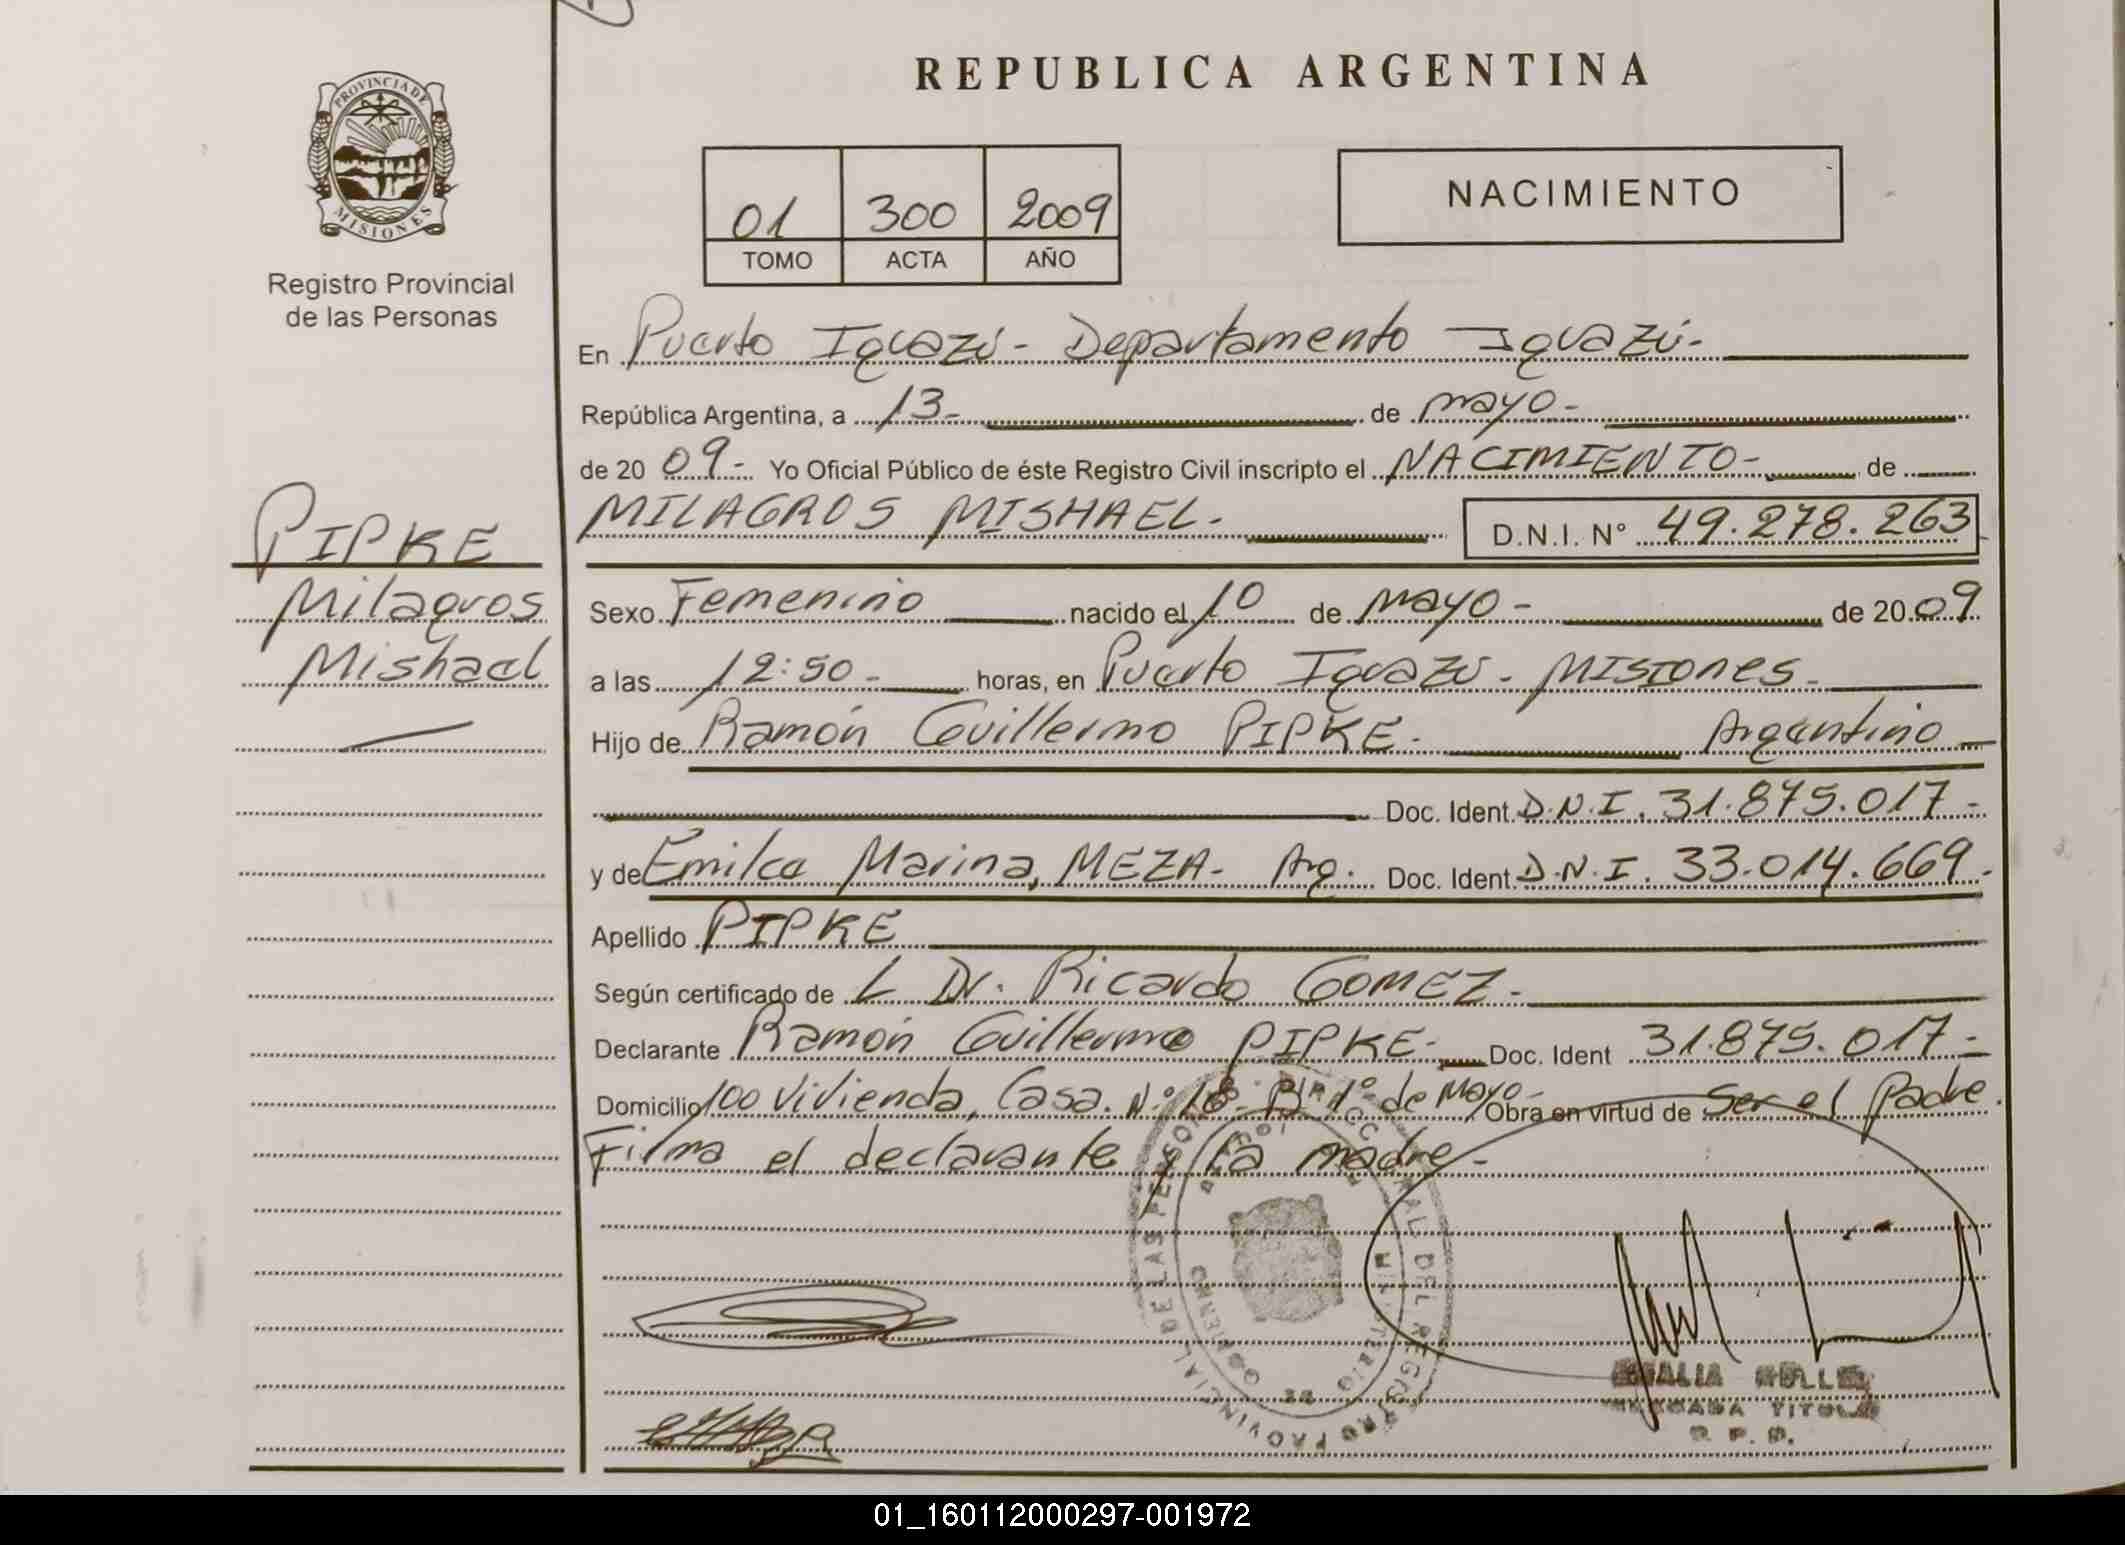 REPUBLICA ARGENTINA
PROVINCIA DE MISIONES
Registro Provincial
de las Personas
01 300 2009
TOMO ACTA AÑO
NACIMIENTO
En Puerto Iguazú - Departamento Iguazú -
República Argentina, a 13 - de mayo -
de 20 09 - Yo Oficial Público de éste Registro Civil inscripto el NACIMIENTO - de
MILAGROS MISHAEL - D.N.I. N° 49.278.263
PIPKE
Milagros
Mishael
Sexo Femenino nacido el 10 de mayo - de 20 09
a las 12:50 - horas, en Puerto Iguazú - MISIONES -
Hijo de Ramón Guillermo PIPKE - Argentino
Doc. Ident. D.N.I. 31.875.017 -
y de Emilce Marina, MEZA - Arg. Doc. Ident. D.N.I. 33.014.669 -
Apellido PIPKE
Según certificado de L Dr. Ricardo GOMEZ -
Declarante Ramón Guillermo PIPKE - Doc. Ident 31.875.017 -
Domicilio 100 Vivienda, Casa N° 18 - B° 1° de Mayo - Obra en virtud de Ser el Padre.
Firma el declarante y la madre -
R. P. P.
01_160112000297-001972